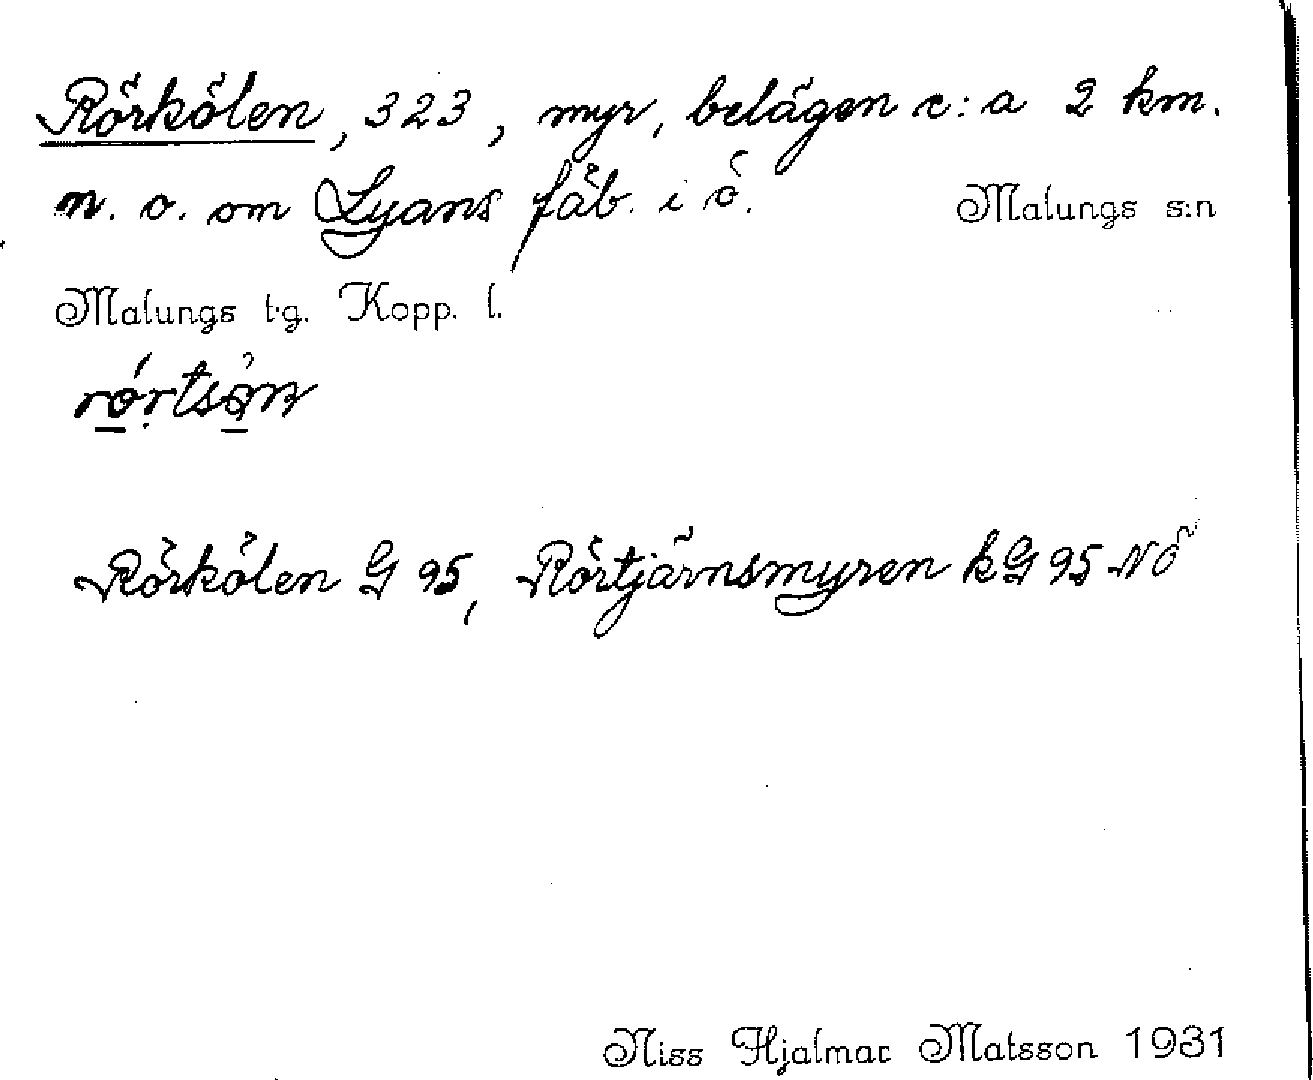 Rörkölen, 323, myr, belägen c:a 2 km.
n. o. om Lyans fäb. i ö. Malungs s:n
Malungs t.g. Kopp. l.
Rörkölen G 95, Rörtjärnsmyren k G 95 NÖ
Niss Hjalmar Matsson 1931